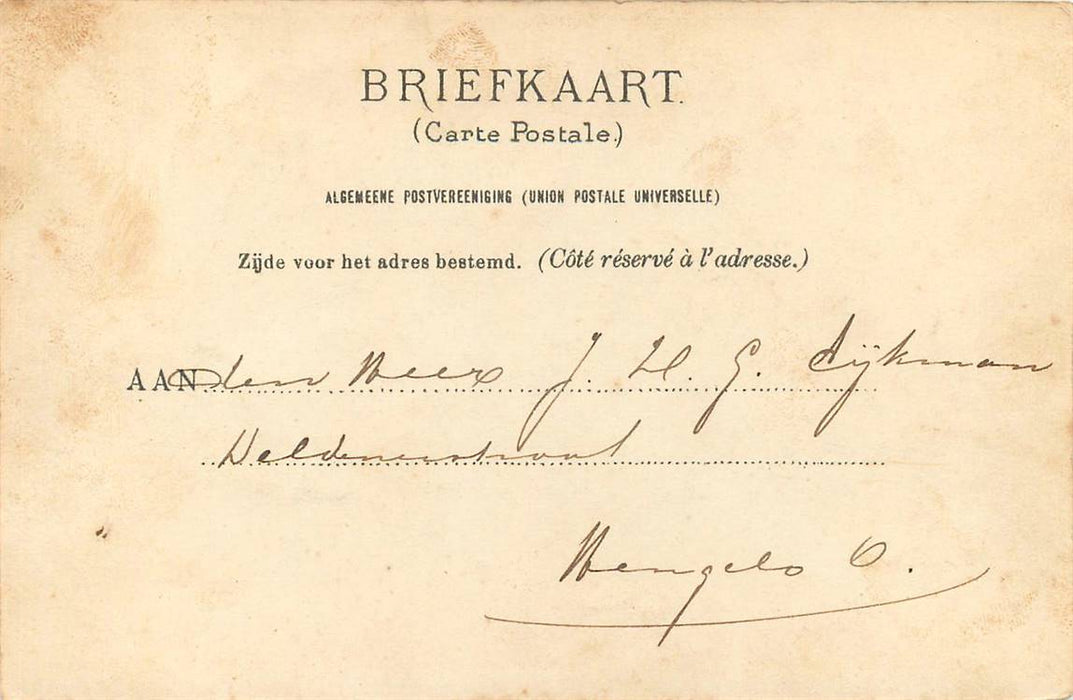 BRIEFKAART.
(Carte Postale.)
ALGEMEENE POSTVEREENIGING (UNION POSTALE UNIVERSELLE)
Zijde voor het adres bestemd. (Côté réservé à l'adresse.)
AAN den Heer J. H. G. Dijkman
Deldenerstraat
Hengelo O.